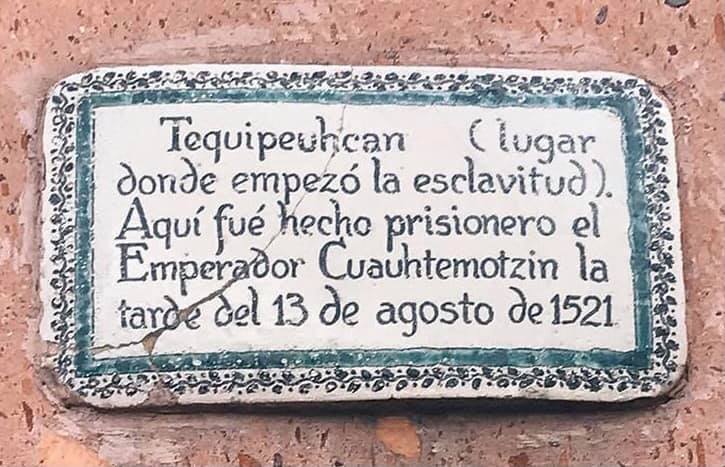 Tequipeuhcan (lugar
donde empezó la esclavitud).
Aquí fué hecho prisionero el
Emperador Cuauhtemotzin la
tarde del 13 de agosto de 1521